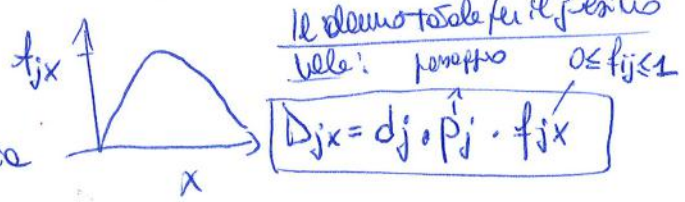 Il danno totale per il j-esimo
vale: passaggio 0≤fij≤1
fjx
Djx = dj · pj · fjx
x